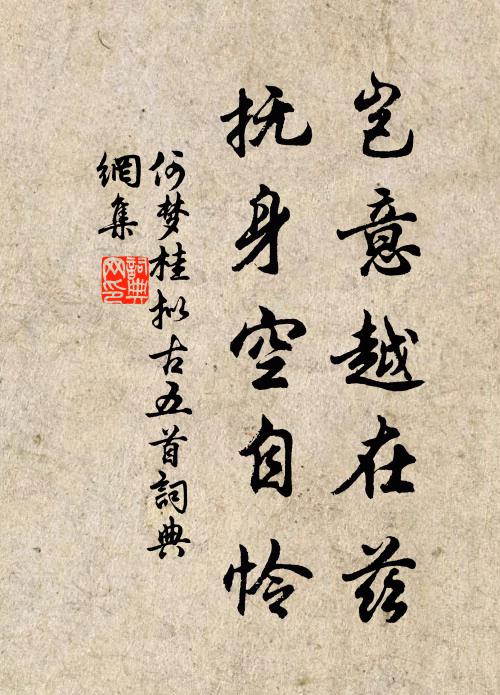 岂意越在兹
抚身空自怜
何梦桂拟古五首詞典
網集
詞典
网印